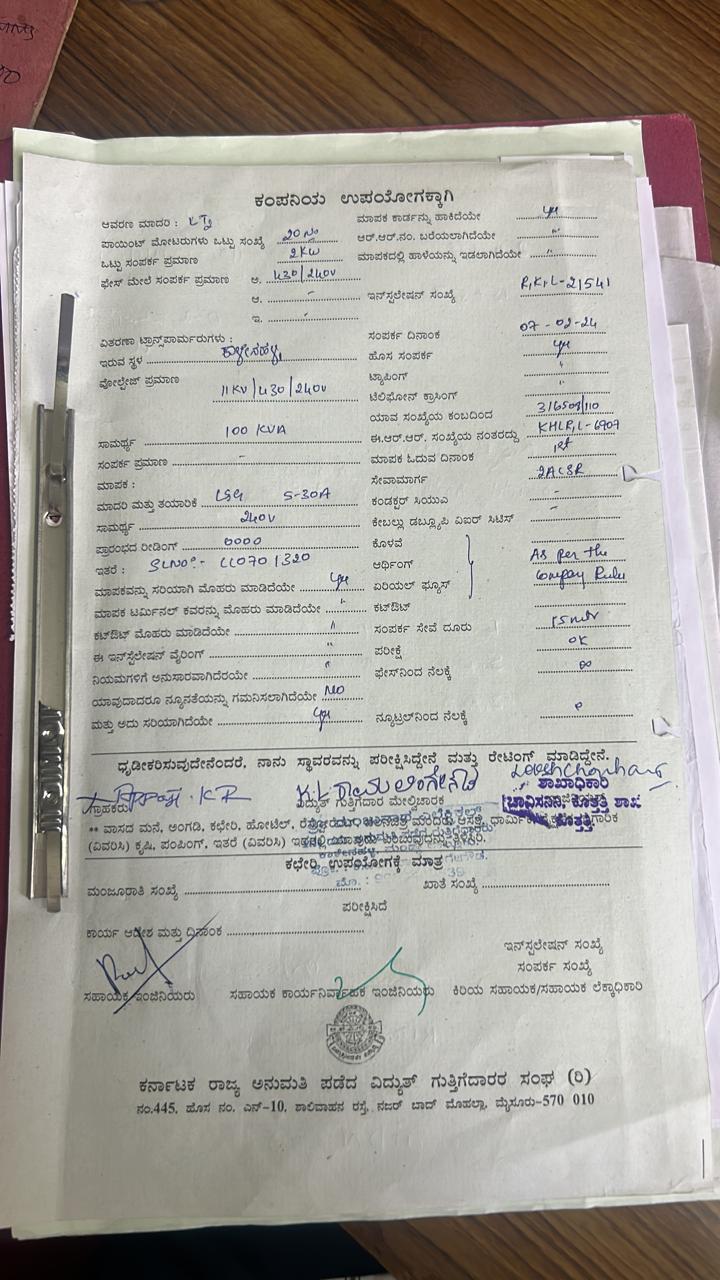 ಕಂಪನಿಯ ಉಪಯೋಗಕ್ಕಾಗಿ
ಆವರಣ ಮಾದರಿ : LT2 ಮಾಪಕ ಕಾರ್ಡನ್ನು ಹಾಕಿದೆಯೇ yes
ಪಾಯಿಂಟ್ ಮೋಟರುಗಳು ಒಟ್ಟು ಸಂಖ್ಯೆ 20 No ಆರ್.ಆರ್.ನಂ. ಬರೆಯಲಾಗಿದೆಯೇ "
ಒಟ್ಟು ಸಂಪರ್ಕ ಪ್ರಮಾಣ 2KW ಮಾಪಕದಲ್ಲಿ ಹಾಳೆಯನ್ನು ಇಡಲಾಗಿದೆಯೇ "
ಫೇಸ್ ಮೇಲೆ ಸಂಪರ್ಕ ಪ್ರಮಾಣ ಅ. 430/240V
ಆ. - ಇನ್‌ಸ್ಟಲೇಷನ್ ಸಂಖ್ಯೆ R,K,L-21541
ಇ.
ವಿತರಣಾ ಟ್ರಾನ್ಸ್‌ಫಾರ್ಮರುಗಳು : ಸಂಪರ್ಕ ದಿನಾಂಕ 07-02-24
ಇರುವ ಸ್ಥಳ ಹೊಸ ಸಂಪರ್ಕ yes
ವೋಲ್ಟೇಜ್ ಪ್ರಮಾಣ 11KV/430/240V ಟ್ಯಾಪಿಂಗ್ "
ಟೆಲಿಫೋನ್ ಕ್ರಾಸಿಂಗ್ "
ಯಾವ ಸಂಖ್ಯೆಯ ಕಂಬದಿಂದ
ಸಾಮರ್ಥ್ಯ 100 KVA ಈ.ಆರ್.ಆರ್. ಸಂಖ್ಯೆಯ ನಂತರದ್ದು
ಸಂಪರ್ಕ ಪ್ರಮಾಣ - ಮಾಪಕ ಓದುವ ದಿನಾಂಕ 1st
ಮಾಪಕ : ಸೇವಾಮಾರ್ಗ 2ACSR
ಮಾದರಿ ಮತ್ತು ತಯಾರಿಕೆ L&G 5-30A ಕಂಡಕ್ಟರ್ ಸಿಯುಎ -
ಸಾಮರ್ಥ್ಯ 240V ಕೇಬಲ್ಲು ಡಬ್ಲ್ಯೂಪಿ ವಿಐಆರ್ ಸಿಟಿಸ್ -
ಪ್ರಾರಂಭದ ರೀಡಿಂಗ್ 0000 ಕೊಳವೆ
ಇತರೆ : SLNo:- LL0701320 ಆರ್ಥಿಂಗ್ As per the
ಮಾಪಕವನ್ನು ಸರಿಯಾಗಿ ಮೊಹರು ಮಾಡಿದೆಯೇ yes ಏರಿಯಲ್ ಫ್ಯೂಸ್ Company Rules
ಮಾಪಕ ಟರ್ಮಿನಲ್ ಕವರನ್ನು ಮೊಹರು ಮಾಡಿದೆಯೇ " ಕಟ್‌ಔಟ್
ಕಟ್‌ಔಟ್ ಮೊಹರು ಮಾಡಿದೆಯೇ " ಸಂಪರ್ಕ ಸೇವೆ ದೂರು 15 mtr
ಈ ಇನ್‌ಸ್ಟಲೇಷನ್ ವೈರಿಂಗ್ " ಪರೀಕ್ಷೆ OK
ನಿಯಮಗಳಿಗೆ ಅನುಸಾರವಾಗಿದೆರೆಯೇ " ಫೇಸ್‌ನಿಂದ ನೆಲಕ್ಕೆ
ಯಾವುದಾದರೂ ನ್ಯೂನತೆಯನ್ನು ಗಮನಿಸಲಾಗಿದೆಯೇ NO
ಮತ್ತು ಅದು ಸರಿಯಾಗಿದೆಯೇ yes ನ್ಯೂಟ್ರಲ್‌ನಿಂದ ನೆಲಕ್ಕೆ
ಧೃಡೀಕರಿಸುವುದೇನೆಂದರೆ, ನಾನು ಸ್ಥಾವರವನ್ನು ಪರೀಕ್ಷಿಸಿದ್ದೇನೆ ಮತ್ತು ರೇಟಿಂಗ್ ಮಾಡಿದ್ದೇನೆ.
K.L ರಾಮಲಿಂಗೇಗೌಡ
ಶಾಖಾಧಿಕಾರಿ
ಗ್ರಾಹಕರು ವಿದ್ಯುತ್ ಗುತ್ತಿಗೆದಾರ ಮೇಲ್ವಿಚಾರಕ ಚಾವಿಸನಿನಿ, ಕೊತ್ತತ್ತಿ ಶಾಖೆ
ಕೊತ್ತತ್ತಿ
** ವಾಸದ ಮನೆ, ಅಂಗಡಿ, ಕಛೇರಿ, ಹೋಟೆಲ್,
(ವಿವರಿಸಿ) ಕೃಷಿ, ಪಂಪಿಂಗ್, ಇತರೆ (ವಿವರಿಸಿ)
ಕಛೇರಿ ಉಪಯೋಗಕ್ಕೆ ಮಾತ್ರ
ಮಂಜೂರಾತಿ ಸಂಖ್ಯೆ ಖಾತೆ ಸಂಖ್ಯೆ
ಪರೀಕ್ಷಿಸಿದೆ
ಕಾರ್ಯ ಆದೇಶ ಮತ್ತು ದಿನಾಂಕ
ಇನ್‌ಸ್ಟಲೇಷನ್ ಸಂಖ್ಯೆ
ಸಂಪರ್ಕ ಸಂಖ್ಯೆ
ಸಹಾಯಕ ಇಂಜಿನಿಯರು ಸಹಾಯಕ ಕಾರ್ಯನಿರ್ವಾಹಕ ಇಂಜಿನಿಯರು ಕಿರಿಯ ಸಹಾಯಕ/ಸಹಾಯಕ ಲೆಕ್ಕಾಧಿಕಾರಿ
ಕರ್ನಾಟಕ ರಾಜ್ಯ ಅನುಮತಿ ಪಡೆದ ವಿದ್ಯುತ್ ಗುತ್ತಿಗೆದಾರರ ಸಂಘ (ರಿ)
ನಂ.445, ಹೊಸ ನಂ. ಎನ್-10, ಶಾಲಿವಾಹನ ರಸ್ತೆ, ನಜರ್ ಬಾದ್ ಮೊಹಲ್ಲಾ, ಮೈಸೂರು-570 010